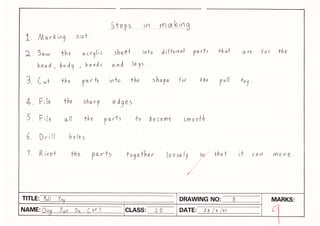 Steps in making
1. Marking out.
2. Saw the acrylic sheet into different parts that are for the
head, body, hands and legs.
3. Cut the parts into the shape for the pull toy.
4. File the sharp edges.
5. File all the parts to become smooth.
6. Drill holes
7. Rivet the parts together loosely so that it can move.
TITLE: Pull Toy
DRAWING NO: 8
MARKS:
NAME: Ong Jun Da
CLASS: 2E
DATE:
9